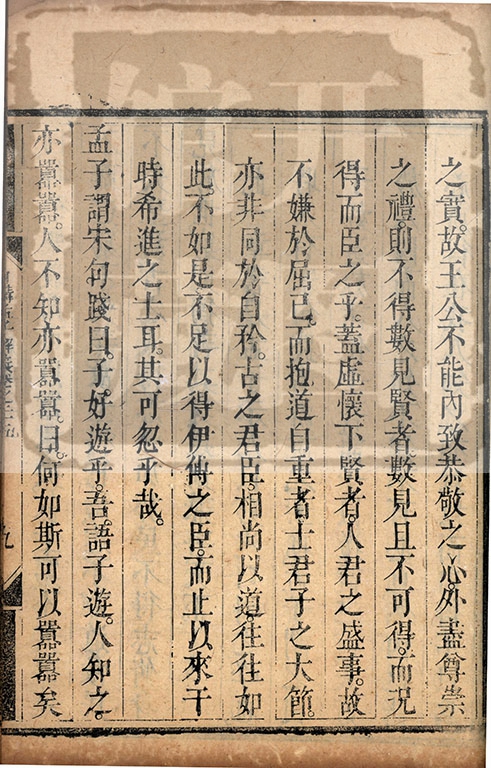 之實。故王公不能內致恭敬之心。外盡尊崇
之禮。則不得數見賢者。數見且不可得。而況
得而臣之乎。蓋虛懷下賢者。人君之盛事。故
不嫌於屈己。而抱道自重者。士君子之大節。
亦非同於自矜。古之君臣。相尚以道。往往如
此。不如是不足以得伊傅之臣。而止以來干
時希進之士耳。其可忽乎哉。
孟子謂宋句踐曰。子好遊乎。吾語子遊。人知之。
亦囂囂。人不知亦囂囂。曰。何如斯可以囂囂矣
日講四書解義卷之二十五
九